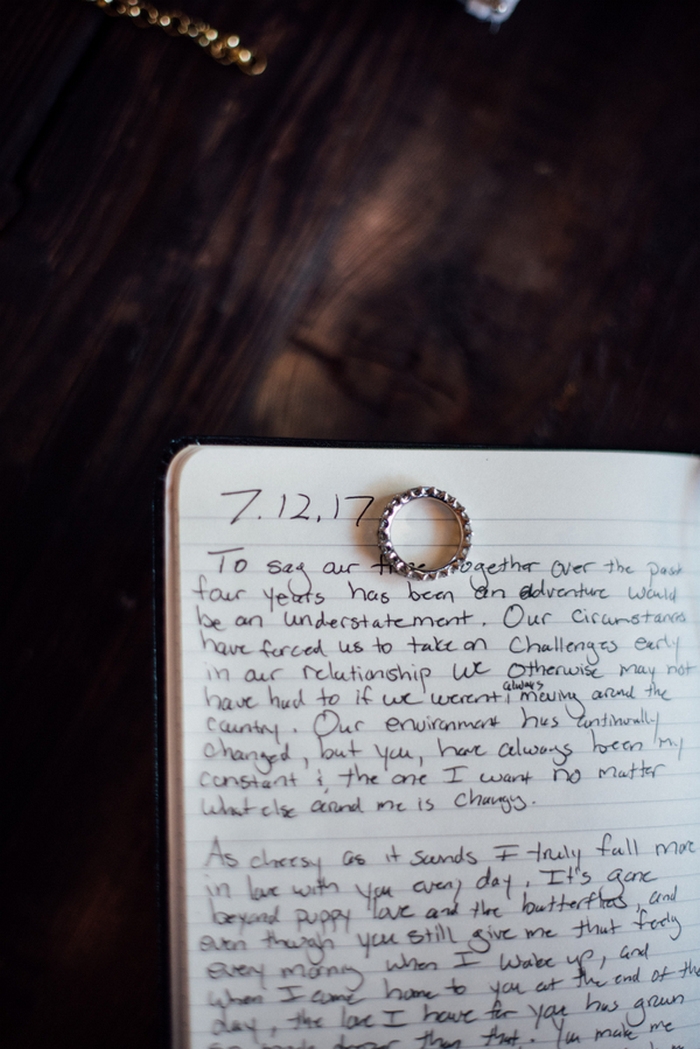 7.12.17
To say our time together over the past
four years has been an adventure would
be an understatement. Our circumstances
have forced us to take on challenges early
in our relationship we otherwise may not
have had to if we weren't always moving around the
country. Our environment has continually
changed, but you, have always been my
constant & the one I want no matter
what else around me is changing.
As cheesy as it sounds I truly fall more
in love with you every day. It's gone
beyond puppy love and the butterflies, and
even though you still give me that feeling
every morning when I wake up, and
when I come home to you at the end of the
day, the love I have for you has grown
so much deeper than that. You make me